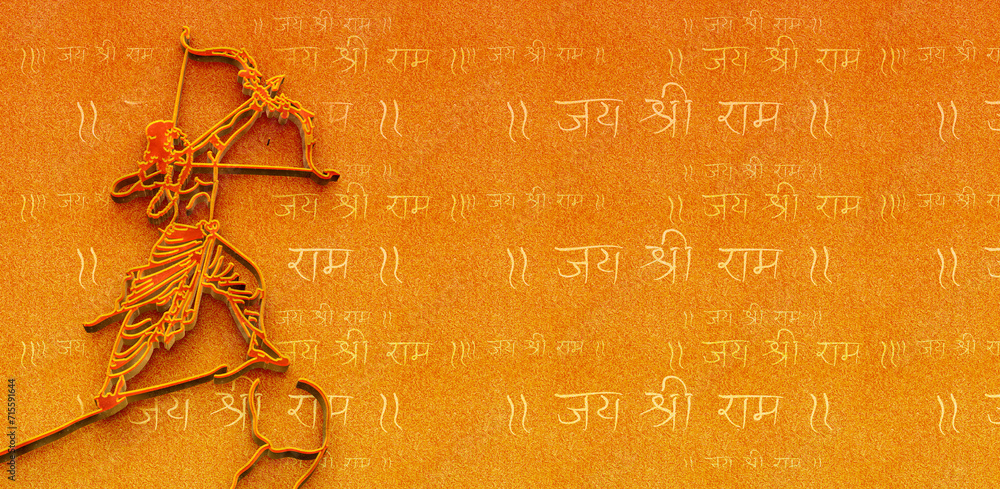 || जय श्री राम || || जय श्री राम || ||
|| जय श्री राम || जय श्री राम || || जय श्री राम || || जय श्री राम || || जय श्री राम
|| राम || || जय श्री राम || ||
श्री राम || || जय श्री राम ||
|| जय श्री राम || || जय श्री राम || || जय श्री राम || || जय श्री राम
|| राम || || जय श्री राम || ||
जय श्री राम || || जय श्री राम ||
|| जय श्री राम || || जय श्री राम || || जय श्री राम || || जय श्री राम
|| जय श्री राम || || जय श्री राम || ||
श्री राम || || जय श्री राम ||
Adobe Stock | #715591644